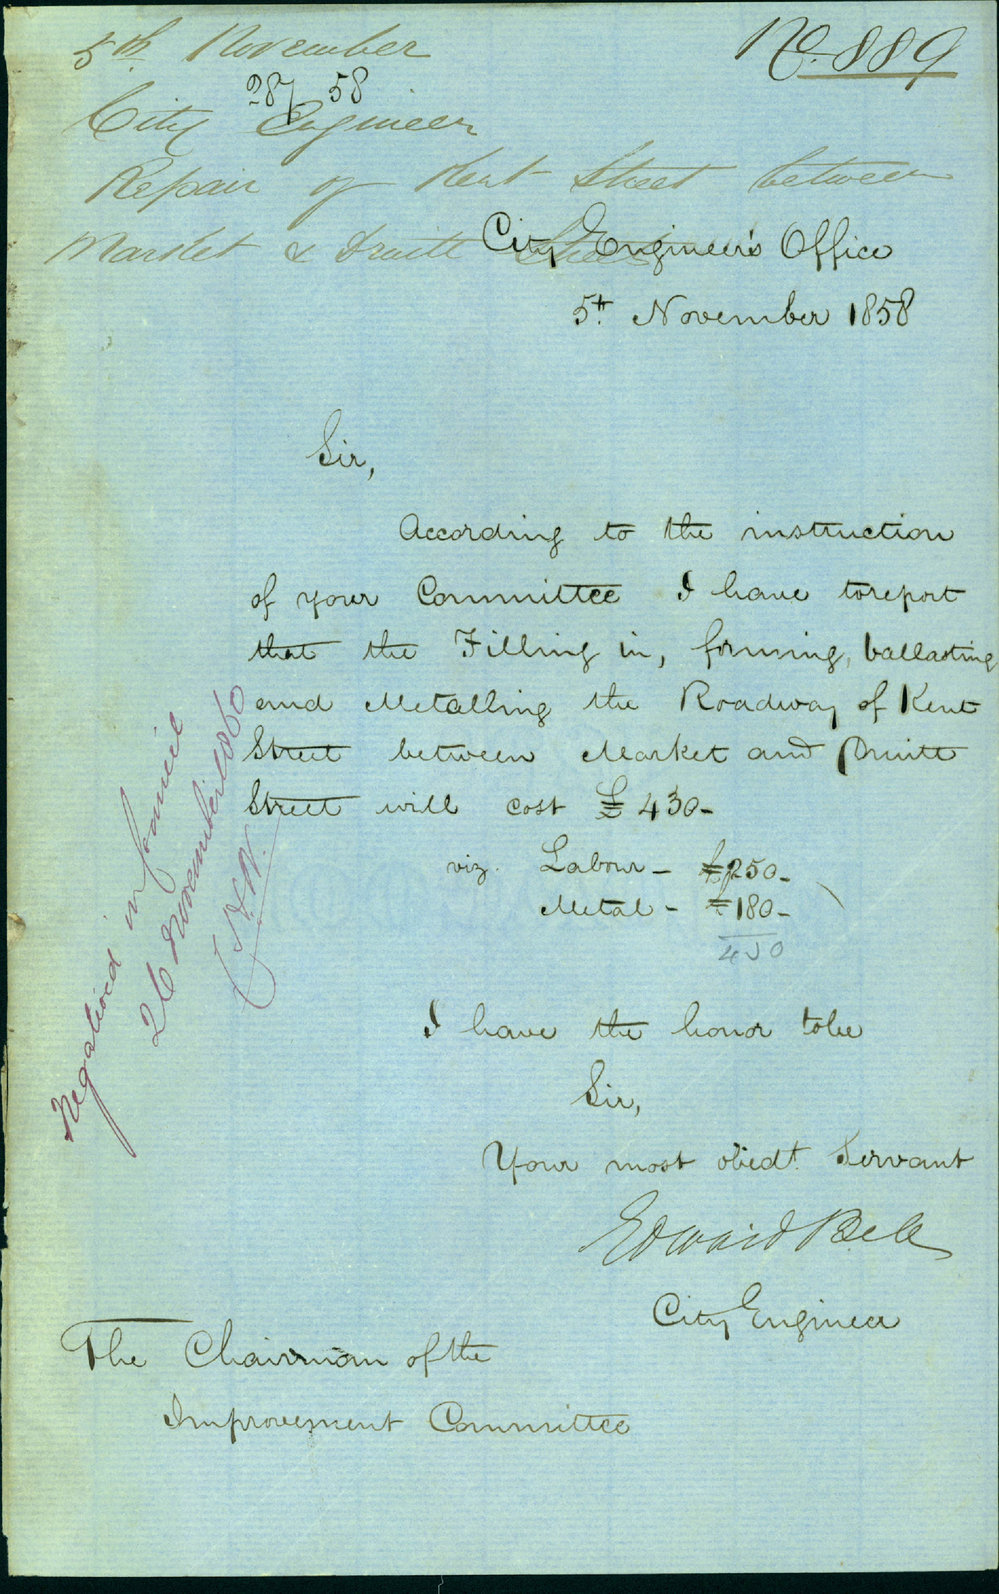 5th November
No. 889
287 58
City Engineer
Repair of Kent Street between
Market & Druitt Streets
City Engineer's Office
5th November 1858
Sir,
According to the instruction
of your Committee I have to report
that the Filling in, forming, ballasting
and Metalling the Roadway of Kent
Street between Market and Druitt
Street will cost £430-
viz. Labour - £250-
Metal - £180-
430
I have the honor to be
Sir,
Your most obedt. Servant
Edward Bell
City Engineer
The Chairman of the
Improvement Committee
Negatived in
26 November 1860